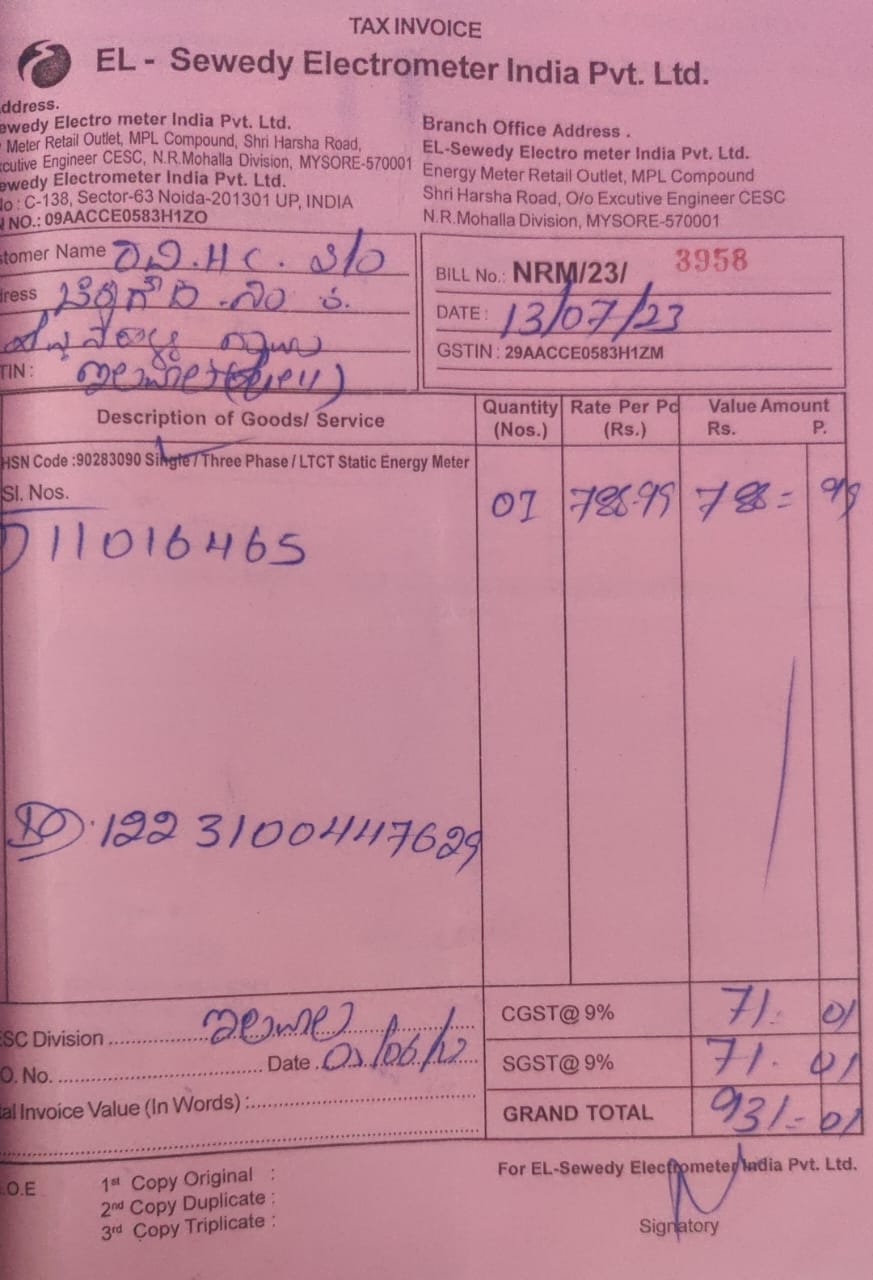 TAX INVOICE
EL - Sewedy Electrometer India Pvt. Ltd.
ddress.
ewedy Electro meter India Pvt. Ltd.
Meter Retail Outlet, MPL Compound, Shri Harsha Road,
cutive Engineer CESC, N.R.Mohalla Division, MYSORE-570001
ewedy Electrometer India Pvt. Ltd.
lo : C-138, Sector-63 Noida-201301 UP, INDIA
NO.: 09AACCE0583H1ZO
Branch Office Address .
EL-Sewedy Electro meter India Pvt. Ltd.
Energy Meter Retail Outlet, MPL Compound
Shri Harsha Road, O/o Excutive Engineer CESC
N.R.Mohalla Division, MYSORE-570001
tomer Name ರವಿ.H C. S/O
ress
TIN :
BILL No.: NRM/23/ 3958
DATE : 13/07/23
GSTIN : 29AACCE0583H1ZM
Description of Goods/ Service
Quantity (Nos.)
Rate Per Pc (Rs.)
Value Amount
Rs. P.
HSN Code :90283090 Single / Three Phase / LTCT Static Energy Meter
Sl. Nos.
01 788-99 788= 99
11016465
122 3100447629
SC Division
O. No. Date
al Invoice Value (In Words) :
CGST@ 9% 71. 01
SGST@ 9% 71. 01
GRAND TOTAL 931-01
For EL-Sewedy Electrometer India Pvt. Ltd.
Signatory
.O.E
1st Copy Original :
2nd Copy Duplicate :
3rd Copy Triplicate :